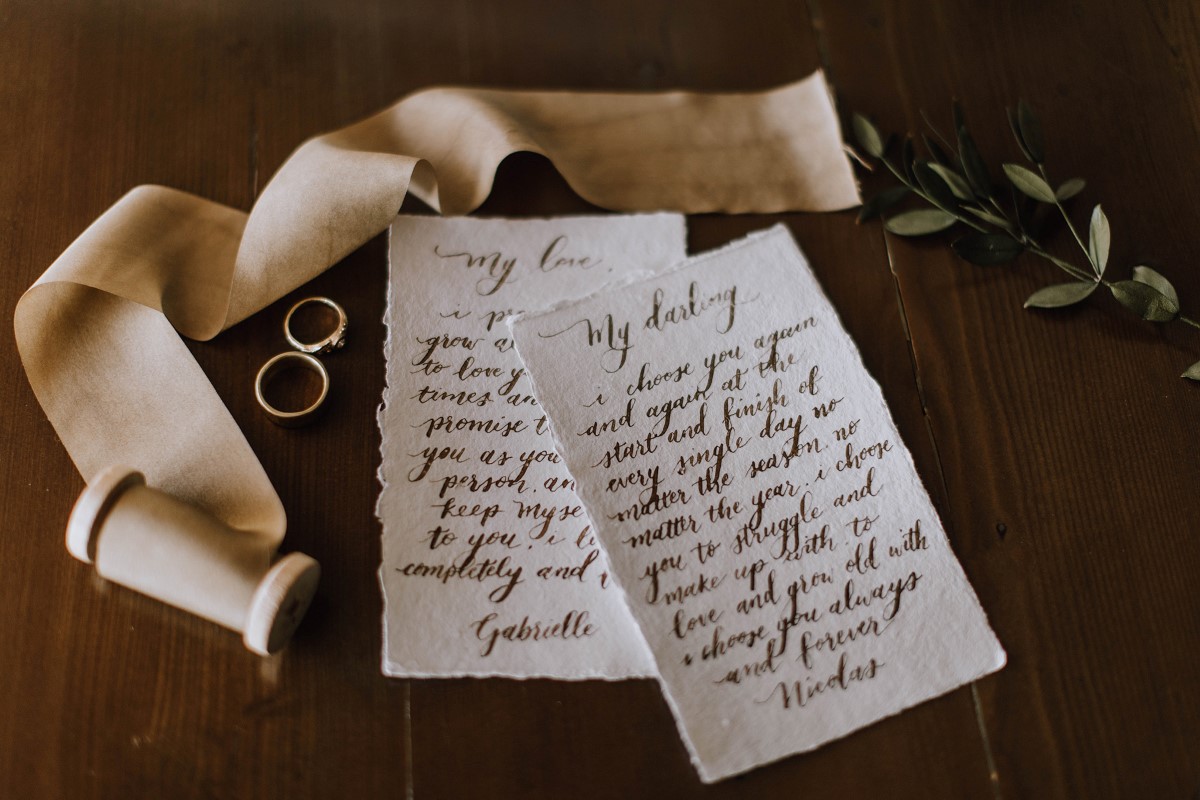 My love,
i
grow
to love
times
promise
you as you
person, an
keep myse
to you. i
completely and
Gabrielle
My darling
i choose you again
and again at the
start and finish of
every single day no
matter the season. no
matter the year. i choose
you to struggle and
make up with. to
love and grow old with
i choose you always
and forever
Nicolas